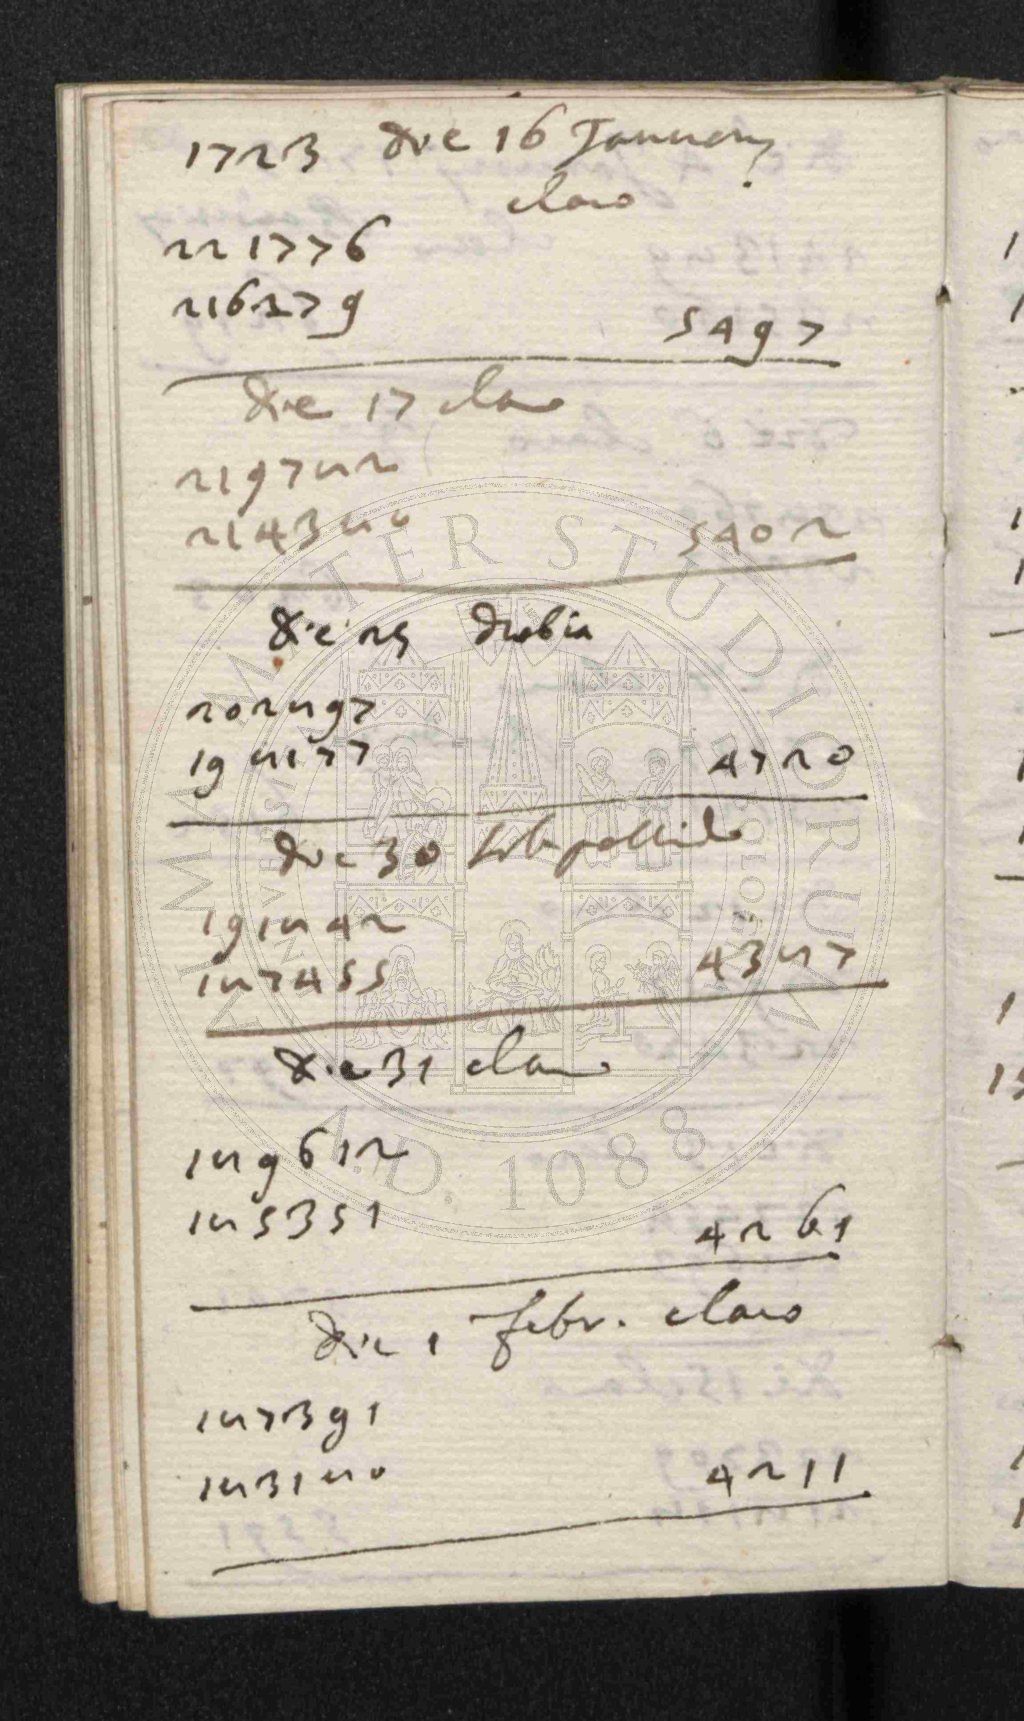 1723 Die 16 Januarij
claro
221776
216279 5497
Die 17 claro
219782
214380 5402
Die 25 dubia
202897
198177 4720
Die 30 subpallida
191842
187455 4387
Die 31 claro
189612
185351 4261
Die 1 febr. claro
187391
183180 4211
ALMA MATER STUDIORUM
A.D. 1088